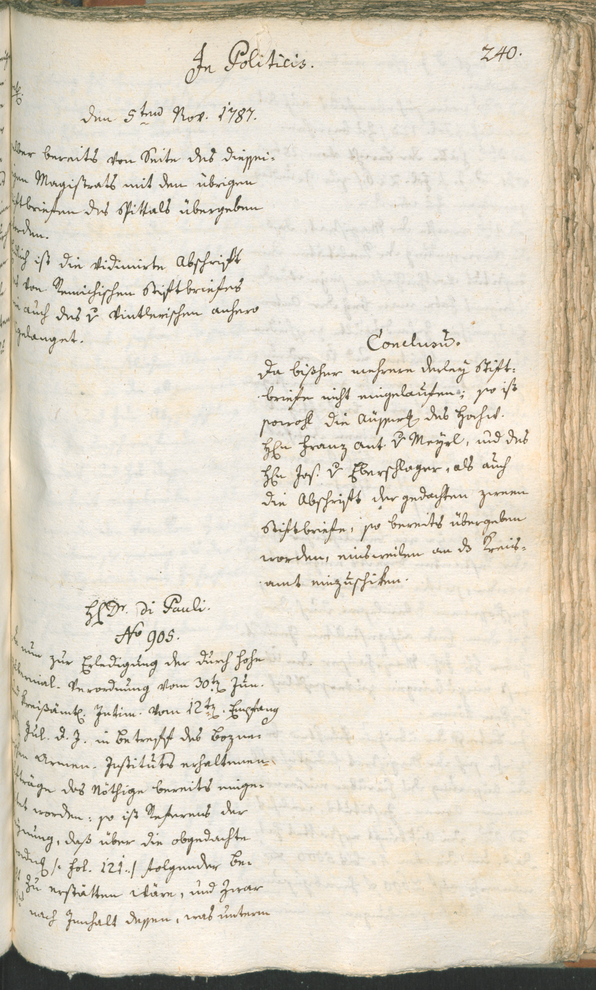 In Politicis.
240.
den 5ten Nov. 1787.
aber bereits von Seite des diessei-
gen Magistrats mit den übrigen
Stiftbriefen des Spittals übergeben
werden.
lich ist die vidimirte Abschrift
von Remichischen Stiftbriefes
auch des v Vintlerischen anhero
gelanget.
Conclusum.
Da bißher mehrere derley Stift-
briefe nicht eingelaufen; so ist
sowohl die Äusserung des Hochw.
Hn Franz Ant. v Meyrl, und des
Hn Jos. v Eberschlager, als auch
die Abschrift der gedachten zween
Stiftbriefe, so bereits übergeben
worden, einsweilen an ds Kreis-
amt einzuschiken.
H Dr. di Pauli.
No 905.
nun zur Erledigung der durch hohe
Gubernial. Verordnung vom 30t Jun.
kreisämtl. Intim. vom 12t Empfang
Jul. d. J. in betreff des Bozne-
Armen-Instituts erhaltenen
träge das Nöthige bereits einge-
worden; so ist Referens der
Meinung, daß über die obgedachte
/: fol. 121. :/ folgender Be-
zu erstatten wäre, und zwar
nach Innhalt dessen, was unterm